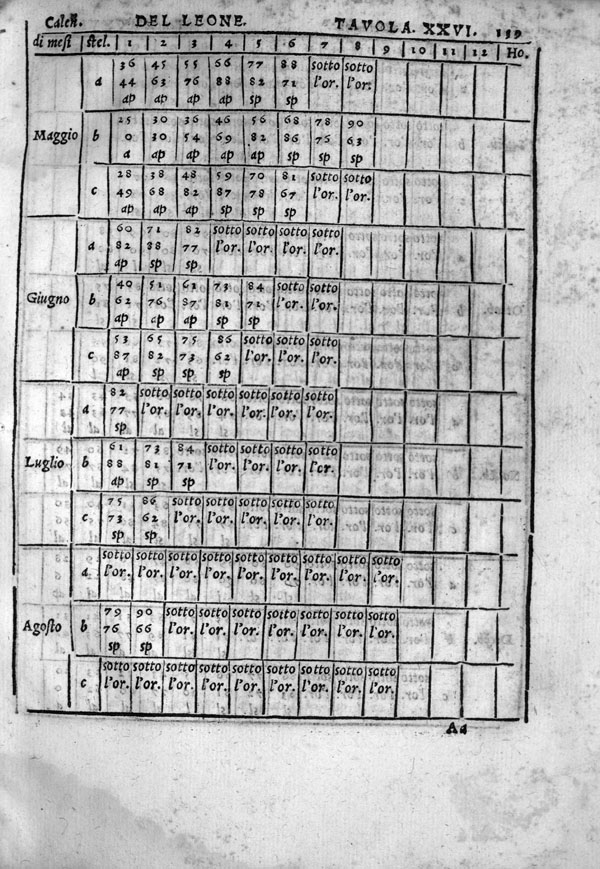 Caleñ. DEL LEONE. TAVOLA. XXVI. 159
di mesi stel. 1 2 3 4 5 6 7 8 9 10 11 12 Ho.
36 45 55 66 77 88 sotto sotto
a 44 63 76 88 82 71 l'or. l'or.
ap ap ap ap sp sp
25 30 36 46 56 68 78 90
Maggio b 0 30 54 69 82 86 76 63
a ap ap ap ap sp sp sp
28 38 48 59 70 81 sotto sotto
c 49 68 82 87 78 67 l'or. l'or.
ap ap ap sp sp sp
60 71 82 sotto sotto sotto sotto
a 82 88 77 l'or. l'or. l'or. l'or.
ap sp sp
40 51 63 73 84 sotto sotto
Giugno b 62 76 87 81 71 l'or. l'or.
ap ap ap sp sp
53 65 75 86 sotto sotto sotto
c 87 82 73 62 l'or. l'or. l'or.
ap sp sp sp
82 sotto sotto sotto sotto sotto sotto
a 77 l'or. l'or. l'or. l'or. l'or. l'or.
sp
61 73 84 sotto sotto sotto sotto
Luglio b 88 81 71 l'or. l'or. l'or. l'or.
ap sp sp
75 86 sotto sotto sotto sotto sotto
c 73 62 l'or. l'or. l'or. l'or. l'or.
sp sp
sotto sotto sotto sotto sotto sotto sotto sotto sotto
a l'or. l'or. l'or. l'or. l'or. l'or. l'or. l'or. l'or.
79 90 sotto sotto sotto sotto sotto sotto sotto
Agosto b 76 66 l'or. l'or. l'or. l'or. l'or. l'or. l'or.
sp sp
sotto sotto sotto sotto sotto sotto sotto sotto sotto
c l'or. l'or. l'or. l'or. l'or. l'or. l'or. l'or. l'or.
Aa